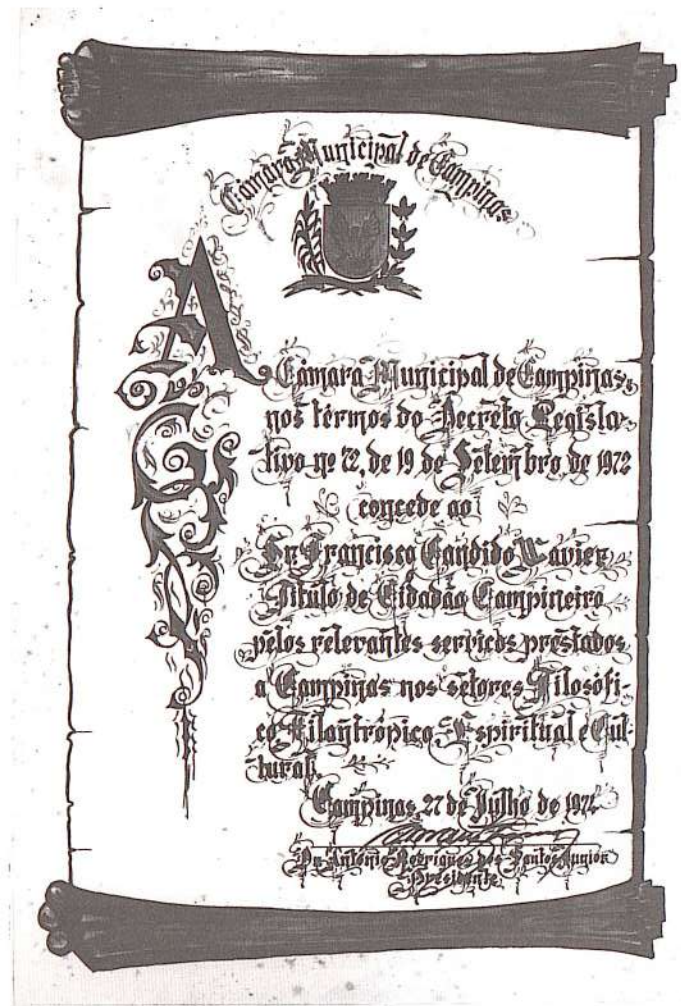 Câmara Municipal de Campinas
A Câmara Municipal de Campinas,
nos têrmos do Decreto Legisla-
tivo nº 72, de 19 de Setembro de 1972
concede ao
Sr. Francisco Candido Xavier
Título de Cidadão Campineiro
pelos relevantes serviços prestados
a Campinas nos setores Filosófi-
co Filantrópico Espiritual e Cul-
tural.
Campinas, 27 de Julho de
Dr. Antônio Rodrigues dos Santos Junior
Presidente